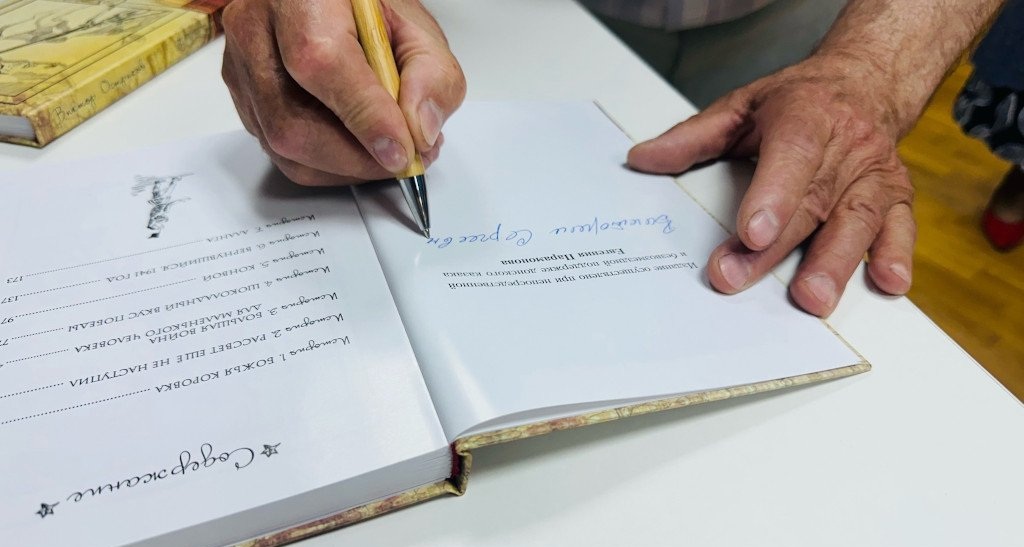 Содержание
История 1. БОЖЬЯ КОРОВКА
История 2. РАССВЕТ ЕЩЕ НЕ НАСТУПИЛ
История 3. БОЛЬШАЯ ВОЙНА
ДЛЯ МАЛЕНЬКОГО ЧЕЛОВЕКА
История 4. ШОКОЛАДНЫЙ ВКУС ПОБЕДЫ 77
История 5. КОННОЙ 97
История 6. ВЕРНУВШИЙСЯ 1941 ГОД 137
История 7. ДАМГА 173
Издание осуществлено при непосредственной
и безвозмездной поддержке донского казака
Евгения Парамонова
Сергееви
Виктор